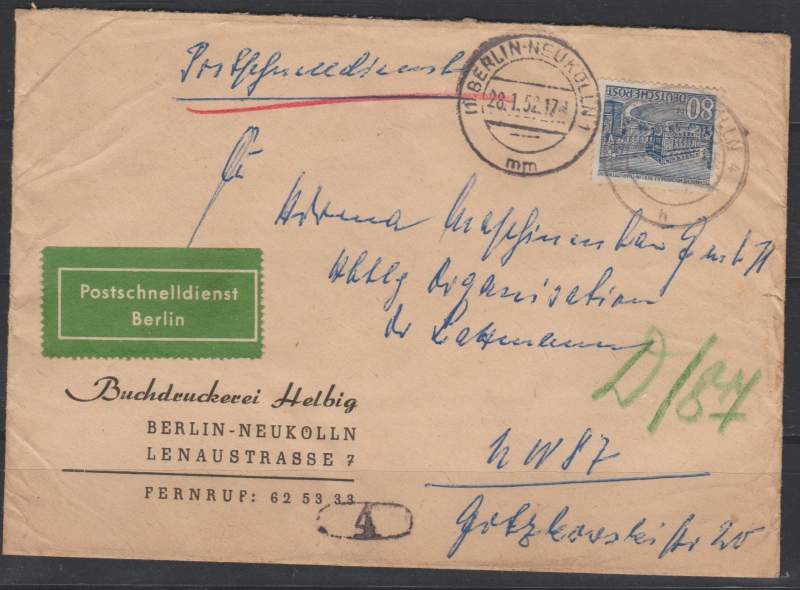 Postschnelldienst
(1) BERLIN-NEUKÖLLN 1
28.1.52.17
mm
80
DEUTSCHE POST
BERLIN 4
h
Firma Maschinenbau GmbH
Abtlg Organisation
Postschnelldienst
Berlin
D/87
Buchdruckerei Helbig
BERLIN-NEUKÖLLN
LENAUSTRASSE 7
NW 87
FERNRUF: 62 53 33
4
Gotzkowskistr 20